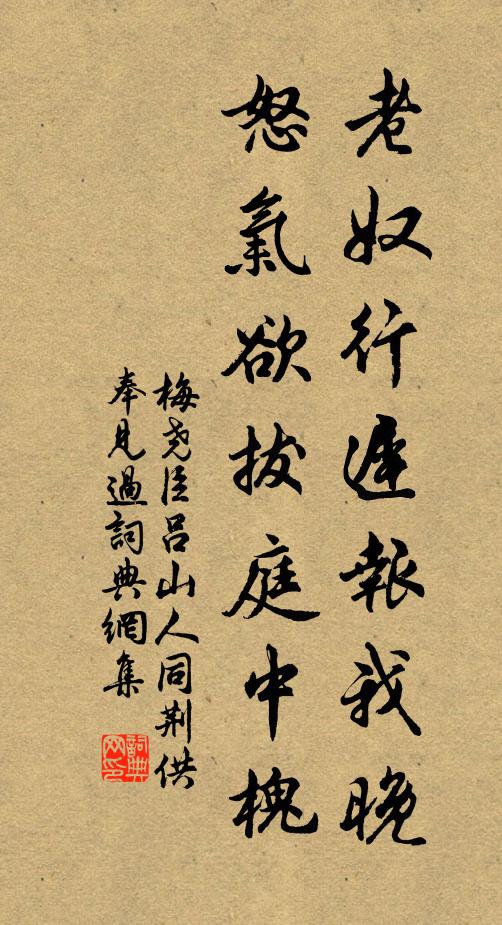 老奴行遲報我晚
怒氣欲拔庭中槐
梅堯臣呂山人同荆供
奉見過詞典網集
詞典网印